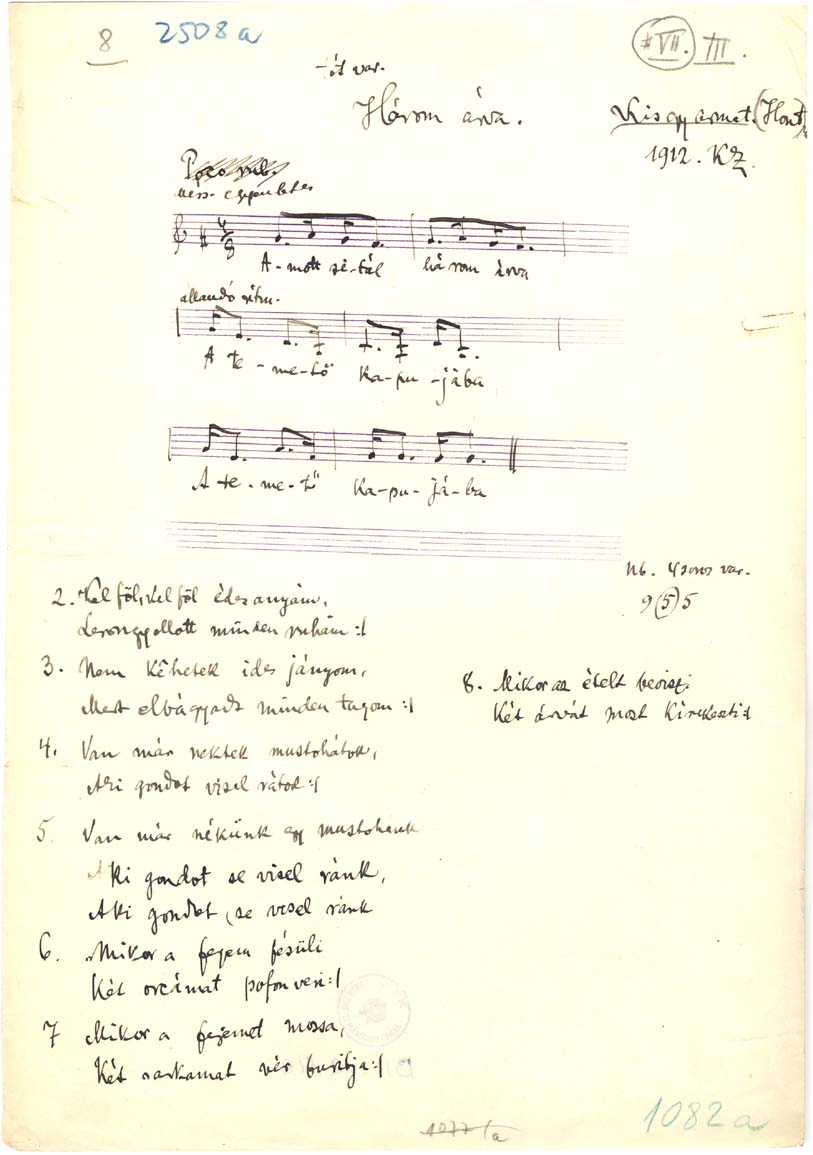 8
2508a
VII. III.
tót var.
Három árva.
Kisgyarmat. (Hont)
1912. KZ.
egyenletes
A-mott sé-tál három árva
allandó ritm.
A te-me-tő Ka-pu-jába
A te-me-tő Ka-pu-já-ba
Nb. 4soros var.
9 5 5
2. Kel föl, kel föl édes anyám,
Lerongyollott minden ruhám :|
3. Nem kêhetek ides jányom,
Mert elbágyadt minden tagom :|
4. Van már nektek mustohátok,
Aki gondot visel rátok :|
5. Van már nékünk egy mustohank
Aki gondot se visel ránk,
Aki gondot se visel ránk
6. Mikor a fejem fésüli
Két orcámat pofon veri :|
7 Mikor a fejemet mossa,
Két sarkamat vér buritja :|
8. Mikor az ételt beviszi
Két árvát most kirekeszti :|
1077/a
1082a